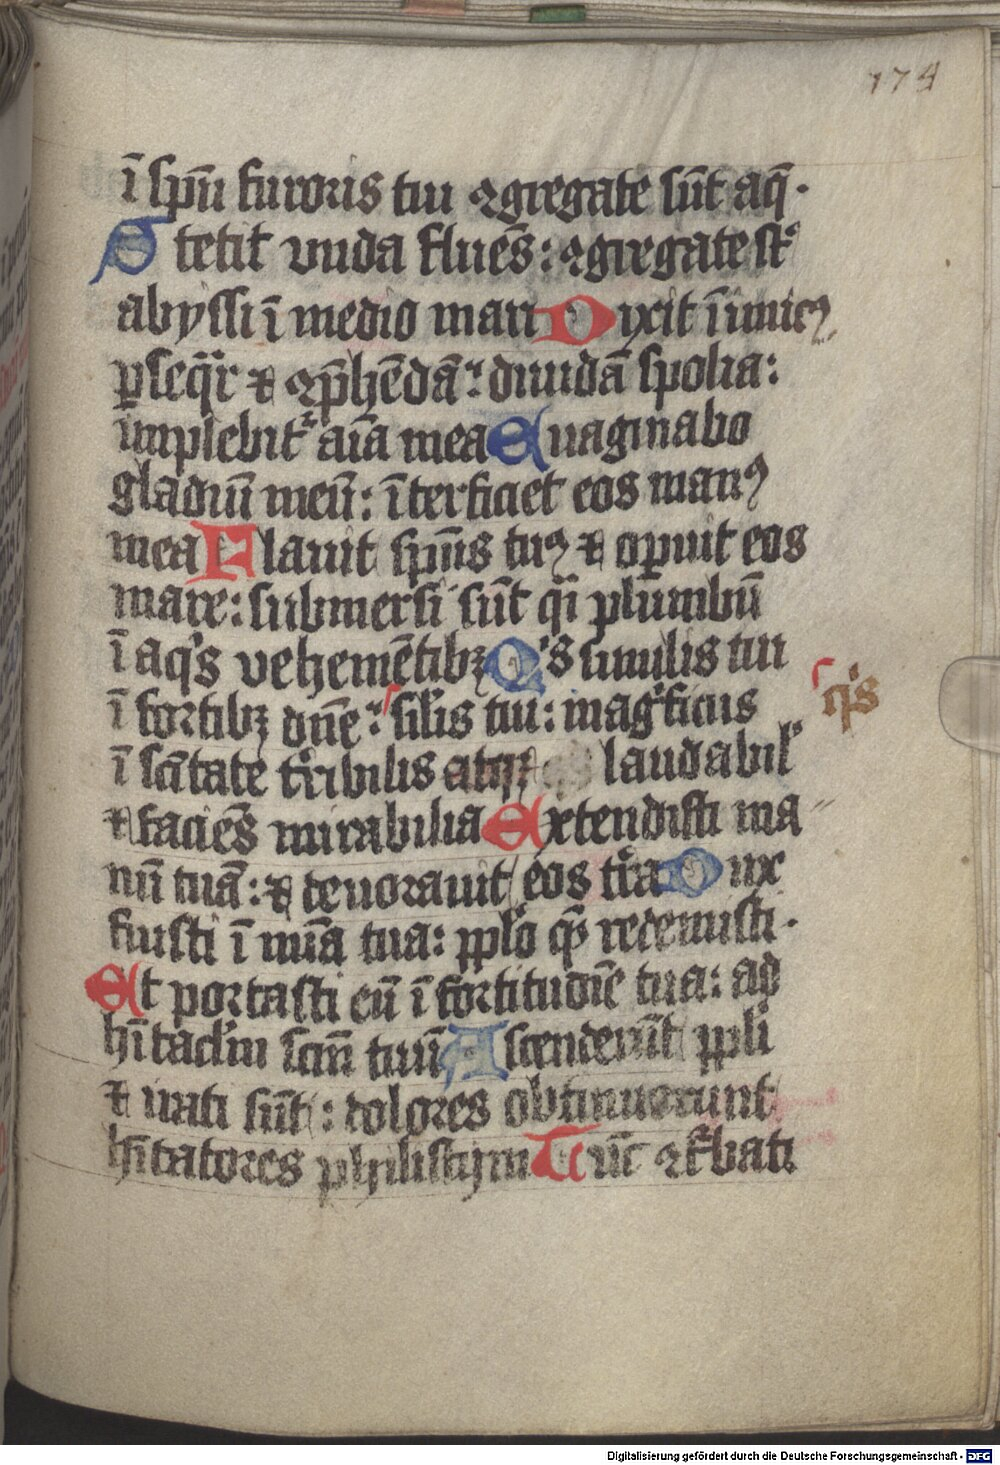 174
ī spū furoris tui ꝯgregate sūt aq̄·
Stetit vnda fluēs: ꝯgregate st᷒
abyssi ī medio mari Dixit īimicꝰ
ꝑseq̄r ⁊ ꝯp̄hēdā: diuidā spolia:
implebit᷑ aīa mea Euaginabo
gladiū meū: īterficiet eos manꝰ
mea Flauit spūs tuꝰ ⁊ oꝑuit eos
mare: submersi sūt qͥ plumbū
ī aqͥs vehemētibꝫ Qͥs similis tui
ī fortibꝫ dn̄e: silis tui: magͥficus
qͥs
ī sc̄itate tr̄ibilis atqꝫ laudabil᷒
⁊ faciēs mirabilia Extendisti ma
nū tuā: ⁊ deuorauit eos tr̄a Dux
fuisti ī mīa tua: pplo qm̄ redemisti·
Et portasti eū ī fortitudīe tua: ad
hītaclm̄ scm̄ tuū Ascenderūt ppli
⁊ irati sūt: dolores obtinuerunt
hītatores philistijm Tūc ꝯt᷑bati
Digitalisierung gefördert durch die Deutsche Forschungsgemeinschaft - DFG